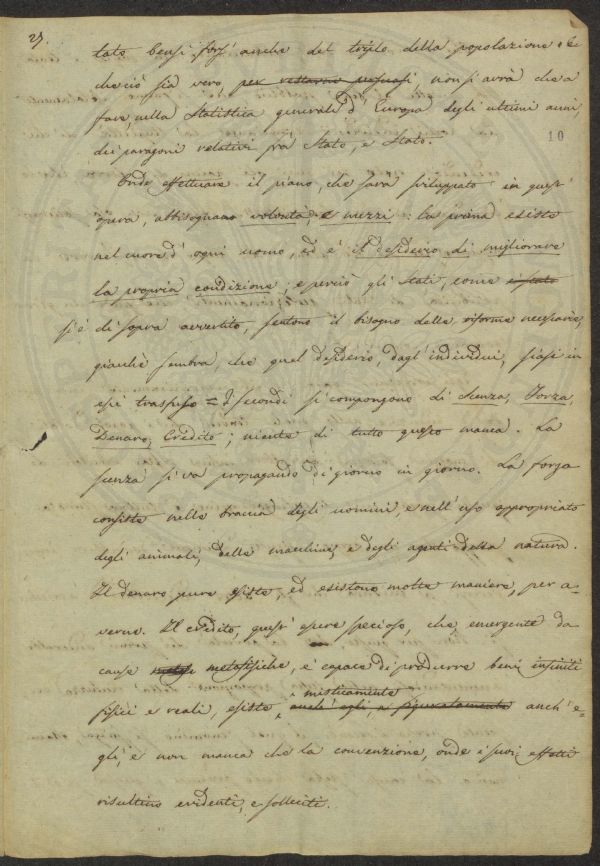 29.
tato bensì fors' anche del triplo della popolazione. E
che ciò sia vero, per restarne persuasi non si avrà che a
fare, nella Statistica generale d' Europa degli ultimi anni,
10
dei paragoni relativi frà Stato, e Stato.
Onde effettuare il piano, che sarà sviluppato in quest'
opera, abbisognano volontà, e mezzi: la prima esiste
nel cuore d' ogni uomo, ed è il desiderio di migliorare
la propria condizione; e perciò gli Stati, come è stato
si è di sopra avvertito, sentono il bisogno delle riforme necessarie,
giacchè sembra, che quel desiderio, dagl' individui, siasi in
essi trasfuso = I secondi si compongono di Scienza, Forza,
Denaro, Credito; niente di tutto questo manca. La
scienza si va propagando di giorno in giorno. La forza
consiste nelle braccia degli uomini, e nell' uso appropriato
degli animali, delle macchine, e degli agenti della natura.
Il denaro pure esiste, ed esistono molte maniere, per a-
verne. Il credito, quest' essere specioso, che, emergente da
cause metafisiche, è capace di produrre beni infiniti
misticamente
fisici e reali, esiste, anch' egli, figuratamente anch' e-
gli, e non manca che la convenzione, onde i suoi effetti
risultino evidenti, e solleciti.